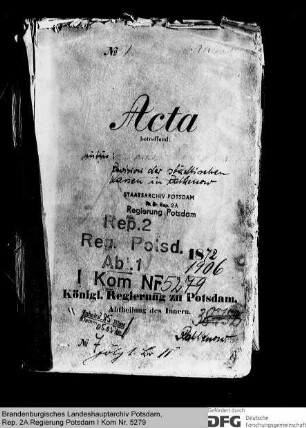 № 1.
Acta
betreffend:
Revision der städtischen
Kassen in
STAATSARCHIV POTSDAM
Pr. Br. Rep. 2A
Regierung Potsdam
Rep. 2
Reg. Potsd. 1872
Abt. 1 1906
I Kom Nr 5279
Königl. Regierung zu Potsdam,
Abtheilung des Innern.
Rathenow
№
Brandenburgisches Landeshauptarchiv Potsdam,
Rep. 2A Regierung Potsdam I Kom Nr. 5279
Gefördert durch
DFG Deutsche
Forschungsgemeinschaft